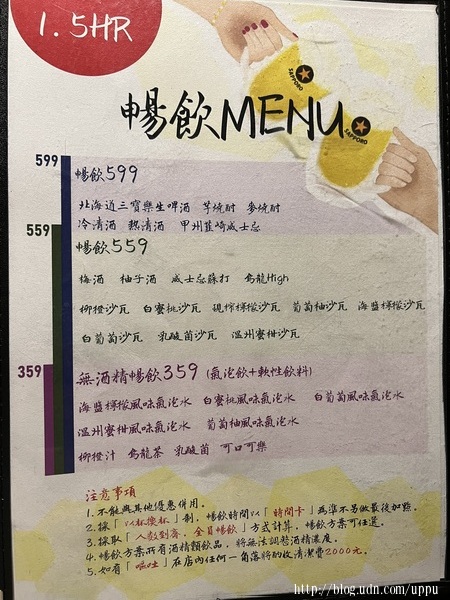 1.5HR
暢飲MENU
SAPPORO
SAPPORO
599
暢飲599
北海道三寶樂生啤酒 芋燒酎 麥燒酎
冷清酒 熱清酒 甲州韮崎威士忌
559
暢飲559
梅酒 柚子酒 威士忌蘇打 烏龍High
柳橙沙瓦 白蜜桃沙瓦 現榨檸檬沙瓦 葡萄柚沙瓦 海鹽檸檬沙瓦
白葡萄沙瓦 乳酸菌沙瓦 溫州蜜柑沙瓦
359
無酒精暢飲359 (氣泡飲+軟性飲料)
海鹽檸檬風味氣泡水 白蜜桃風味氣泡水 白葡萄風味氣泡水
溫州蜜柑風味氣泡水 葡萄柚風味氣泡水
柳橙汁 烏龍茶 乳酸菌 可口可樂
注意事項
1.不能與其他優惠併用。
2.採「以杯換杯」制，暢飲時間以「時間卡」為準不另做最後加點。
3.採取「人數到齊，全員暢飲」方式計算，暢飲方案可任選。
4.暢飲方案所有酒精類飲品，將無法調整酒精濃度。
5.如有「嘔吐」在店內任何一角落將酌收清潔費2000元。
http://blog.udn.com/uppu